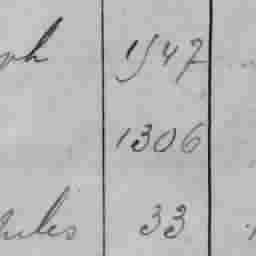 ph 1547
1306
hules 33